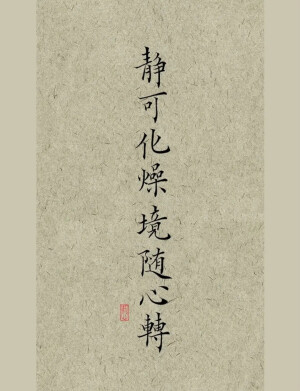 静可化燥境随心轉